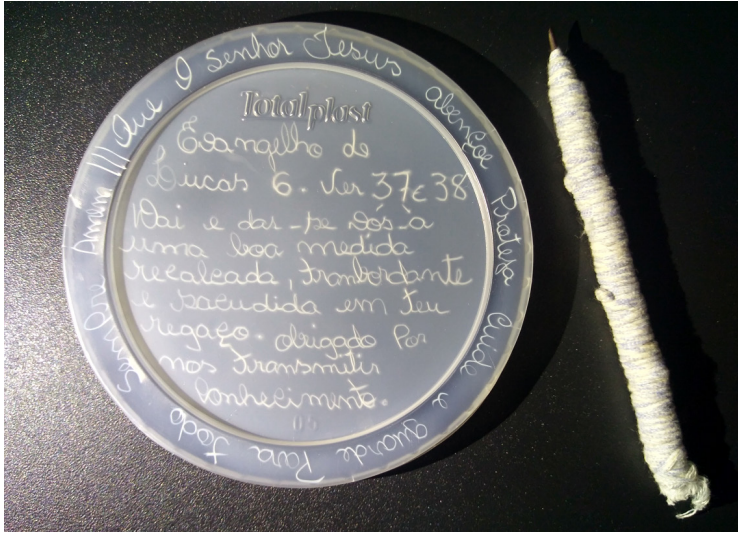 Que O Senhor Jesus abençoe Proteja Cuide e guarde Para todo sempre Amém !!!
Totalplast
Evangelho de
Lucas 6. Ver 37 e 38
Dai e dar-se vos-á
uma boa medida
recalcada, tranbordante
e sacudida em teu
regaço. obrigado Por
nos transmitir
conhecimento.
05